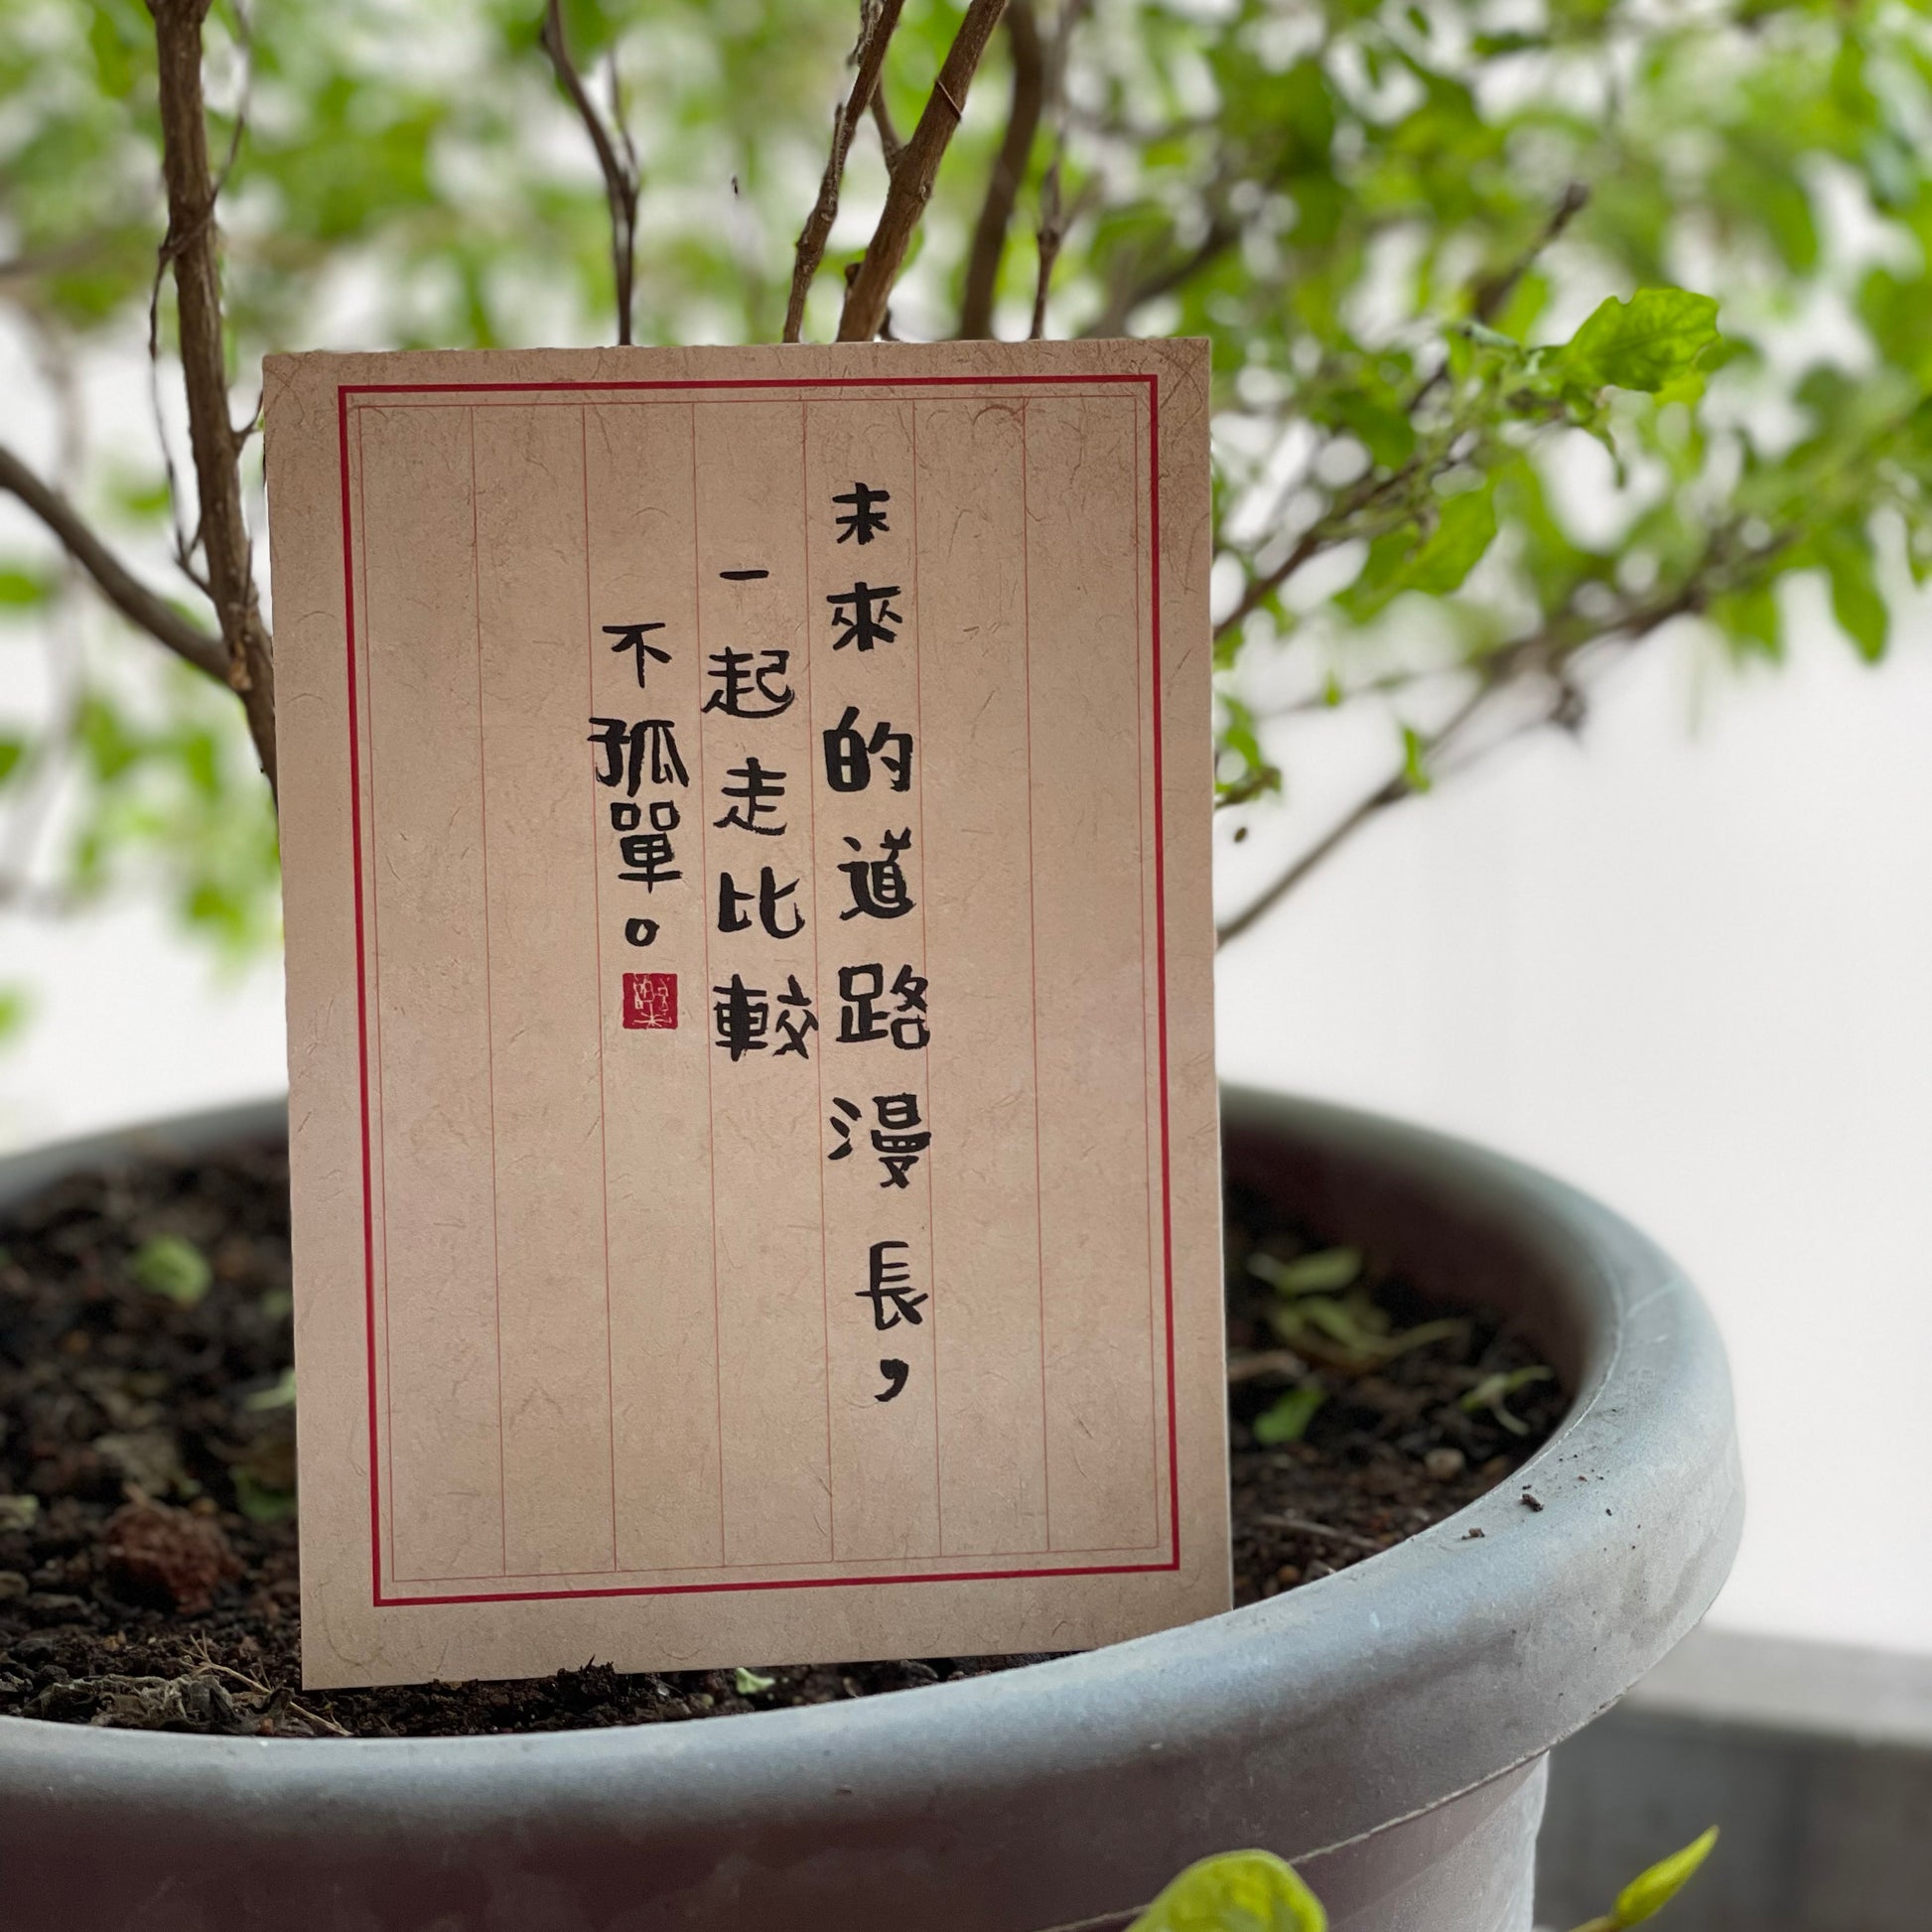 未來的道路漫長，
一起走比較
不孤單。